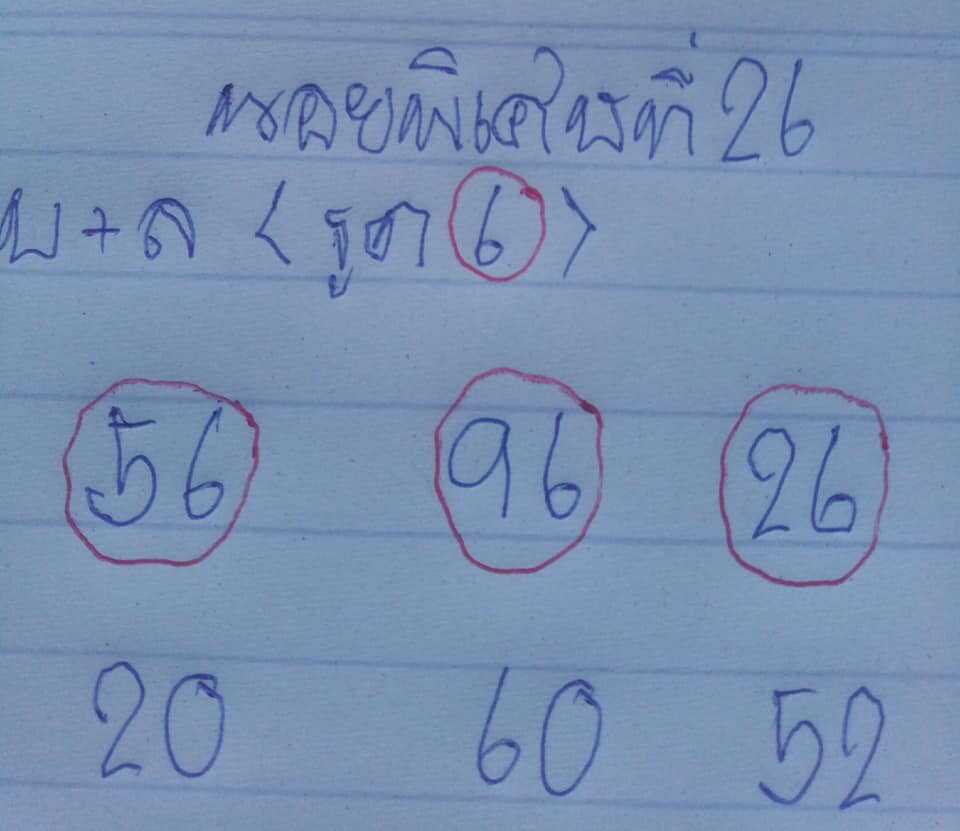 หรอยพิเศษที่ 26
บ+ล <รูด 6>
56 96 26
20 60 52